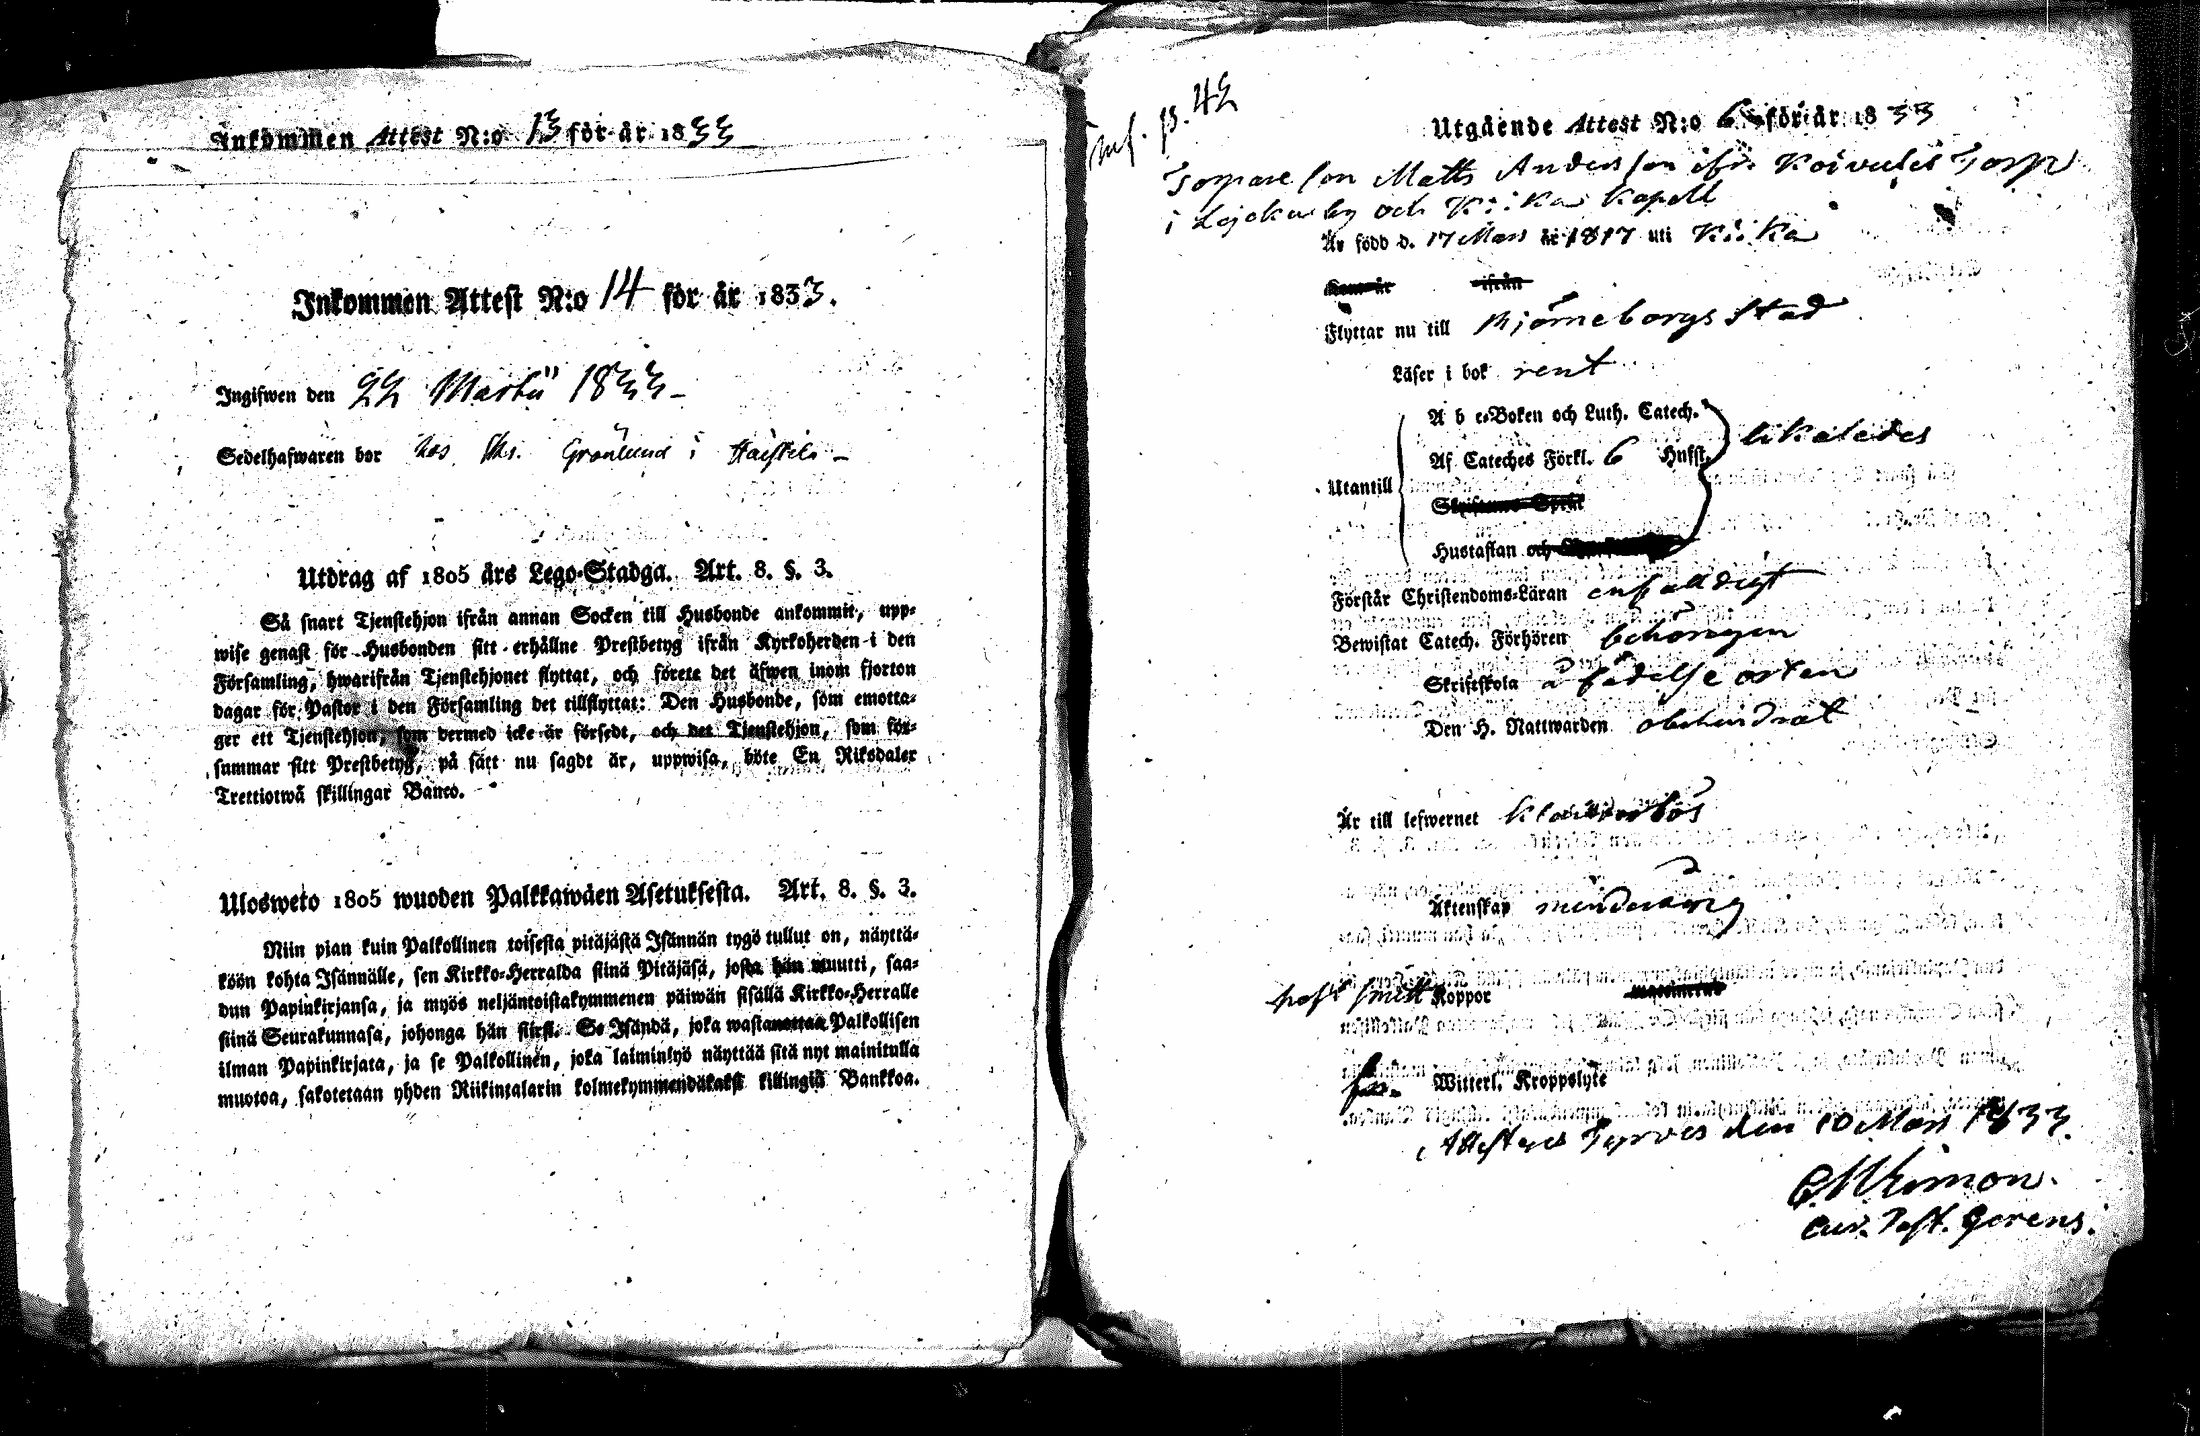 Ankommen Attest N:o 13 för år 1833
Inkommen Attest N:o 14 för år 1833.
Ingifwen den 22 Martii 1833 -
Sedelhafwaren bor hos Grönlund i
Utdrag af 1805 års Lego-Stadga. Art. 8. §. 3.
Så snart Tjenstehjon ifrån annan Socken till Husbonde ankommit, upp-
wise genast för Husbonden sitt erhållne Prestbetyg ifrån Kyrkoherden i den
Församling, hwarifrån Tjenstehjonet flyttat, och förete det äfwen inom fjorton
dagar för Pastor i den Församling det tillflyttat: Den Husbonde, som emotta-
ger ett Tjenstehjon, som dermed icke är försedt, och det Tjenstehjon, som för-
summar sitt Prestbetyg, på sätt nu sagdt är, uppwisa, böte En Riksdaler
Trettiotwå skillingar Banco.
Ulosweto 1805 wuoden Palkkawäen Asetuksesta. Art. 8. §. 3.
Niin pian kuin Palkollinen toisesta pitäjästä Isännän tygö tullut on, näyttä-
köön kohta Isännälle, sen Kirkko-Herralda siinä Pitäjäsä, josta hän muutti, saa-
dun Papinkirjansa, ja myös neljäntoistakymmenen päiwän sisällä Kirkko-Herralle
siinä Seurakunnasa, johonga hän siirsi. Se Isändä, joka wastanottaa Palkollisen
ilman Papinkirjata, ja se Palkollinen, joka laiminlyö näyttää sitä nyt mainitulla
muotoa, sakotetaan yhden Riikintalarin kolmekymmendäkaksi killingiä Bankkoa.
Inf. p. 42
Utgående Attest N:o 6 för år 1833
Torpare son Matts Andersson ifr. Koivulis Torp
i by och Kiika Kapell
Är född d. 17 Mars år 1817 uti Kiika
Kom år ifrån
Flyttar nu till Björneborgs Stad
Läser i bok rent
A b c-Boken och Luth. Catech.
Af Cateches Förkl. 6 Hufst. likaledes
Utantill
Skriftenes Språk
Hustaflan och
Förstår Christendoms-Läran enfalldigt
Bewistat Catech. Förhören behörigen
Skriftskola å födelse orten
Den H. Nattwarden obehindrat
Är till lefwernet klanderlös
Äktenskap minderårig
haft smitt Koppor
fri. Witterl. Kroppslyte
Attesteras Tyrvis den 10 Mars 1833.